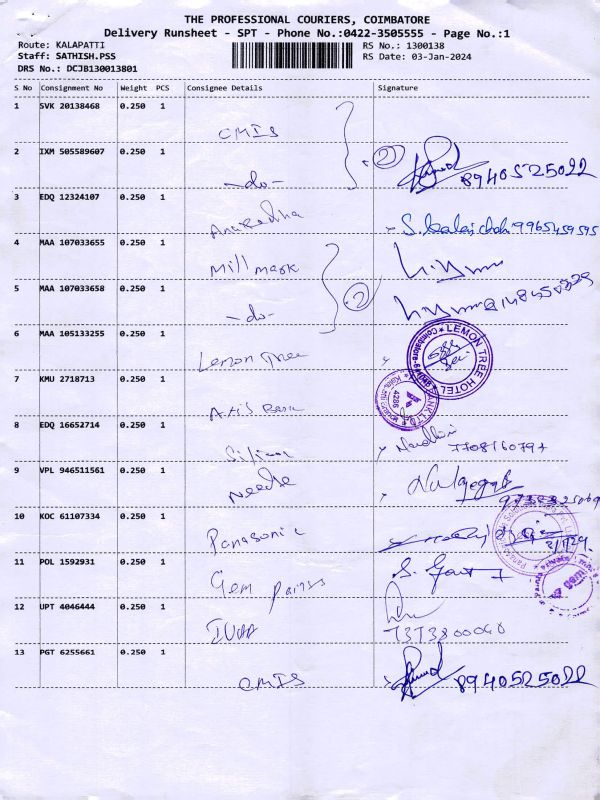 THE PROFESSIONAL COURIERS, COIMBATORE
Delivery Runsheet - SPT - Phone No.:0422-3505555 - Page No.:1
Route: KALAPATTI
RS No.: 1300138
Staff: SATHISH.PSS
RS Date: 03-Jan-2024
DRS No.: DCJB130013801
S No Consignment No Weight PCS Consignee Details Signature
1 SVK 20138468 0.250 1
CMIS
2 IXM 505589607 0.250 1 2
-do- 8940525022
3 EDQ 12324107 0.250 1
Anuradha 9965459595
4 MAA 107033655 0.250 1
Mill mark
5 MAA 107033658 0.250 1 2
-do-
6 MAA 105133255 0.250 1
Lemon Tree LEMON TREE HOTEL
7 KMU 2718713 0.250 1
Axis Bank
8 EDQ 16652714 0.250 1
9 VPL 946511561 0.250 1
Needle
10 KOC 61107334 0.250 1
Panasonic
11 POL 1592931 0.250 1
Gem Paints
12 UPT 4046444 0.250 1
7373800040
13 PGT 6255661 0.250 1
CMIS 8940525022